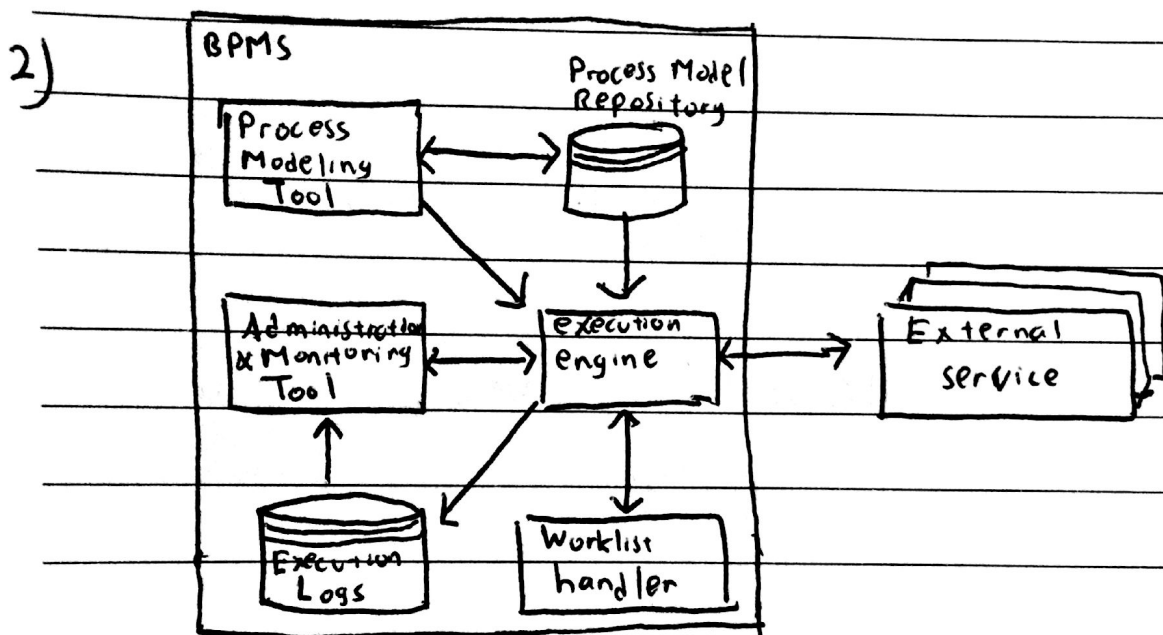 2)
BPMS
Process Model
Repository
Process
Modeling
Tool
Administration
& Monitoring
Tool
execution
engine
External
service
Execution
Logs
Worklist
handler